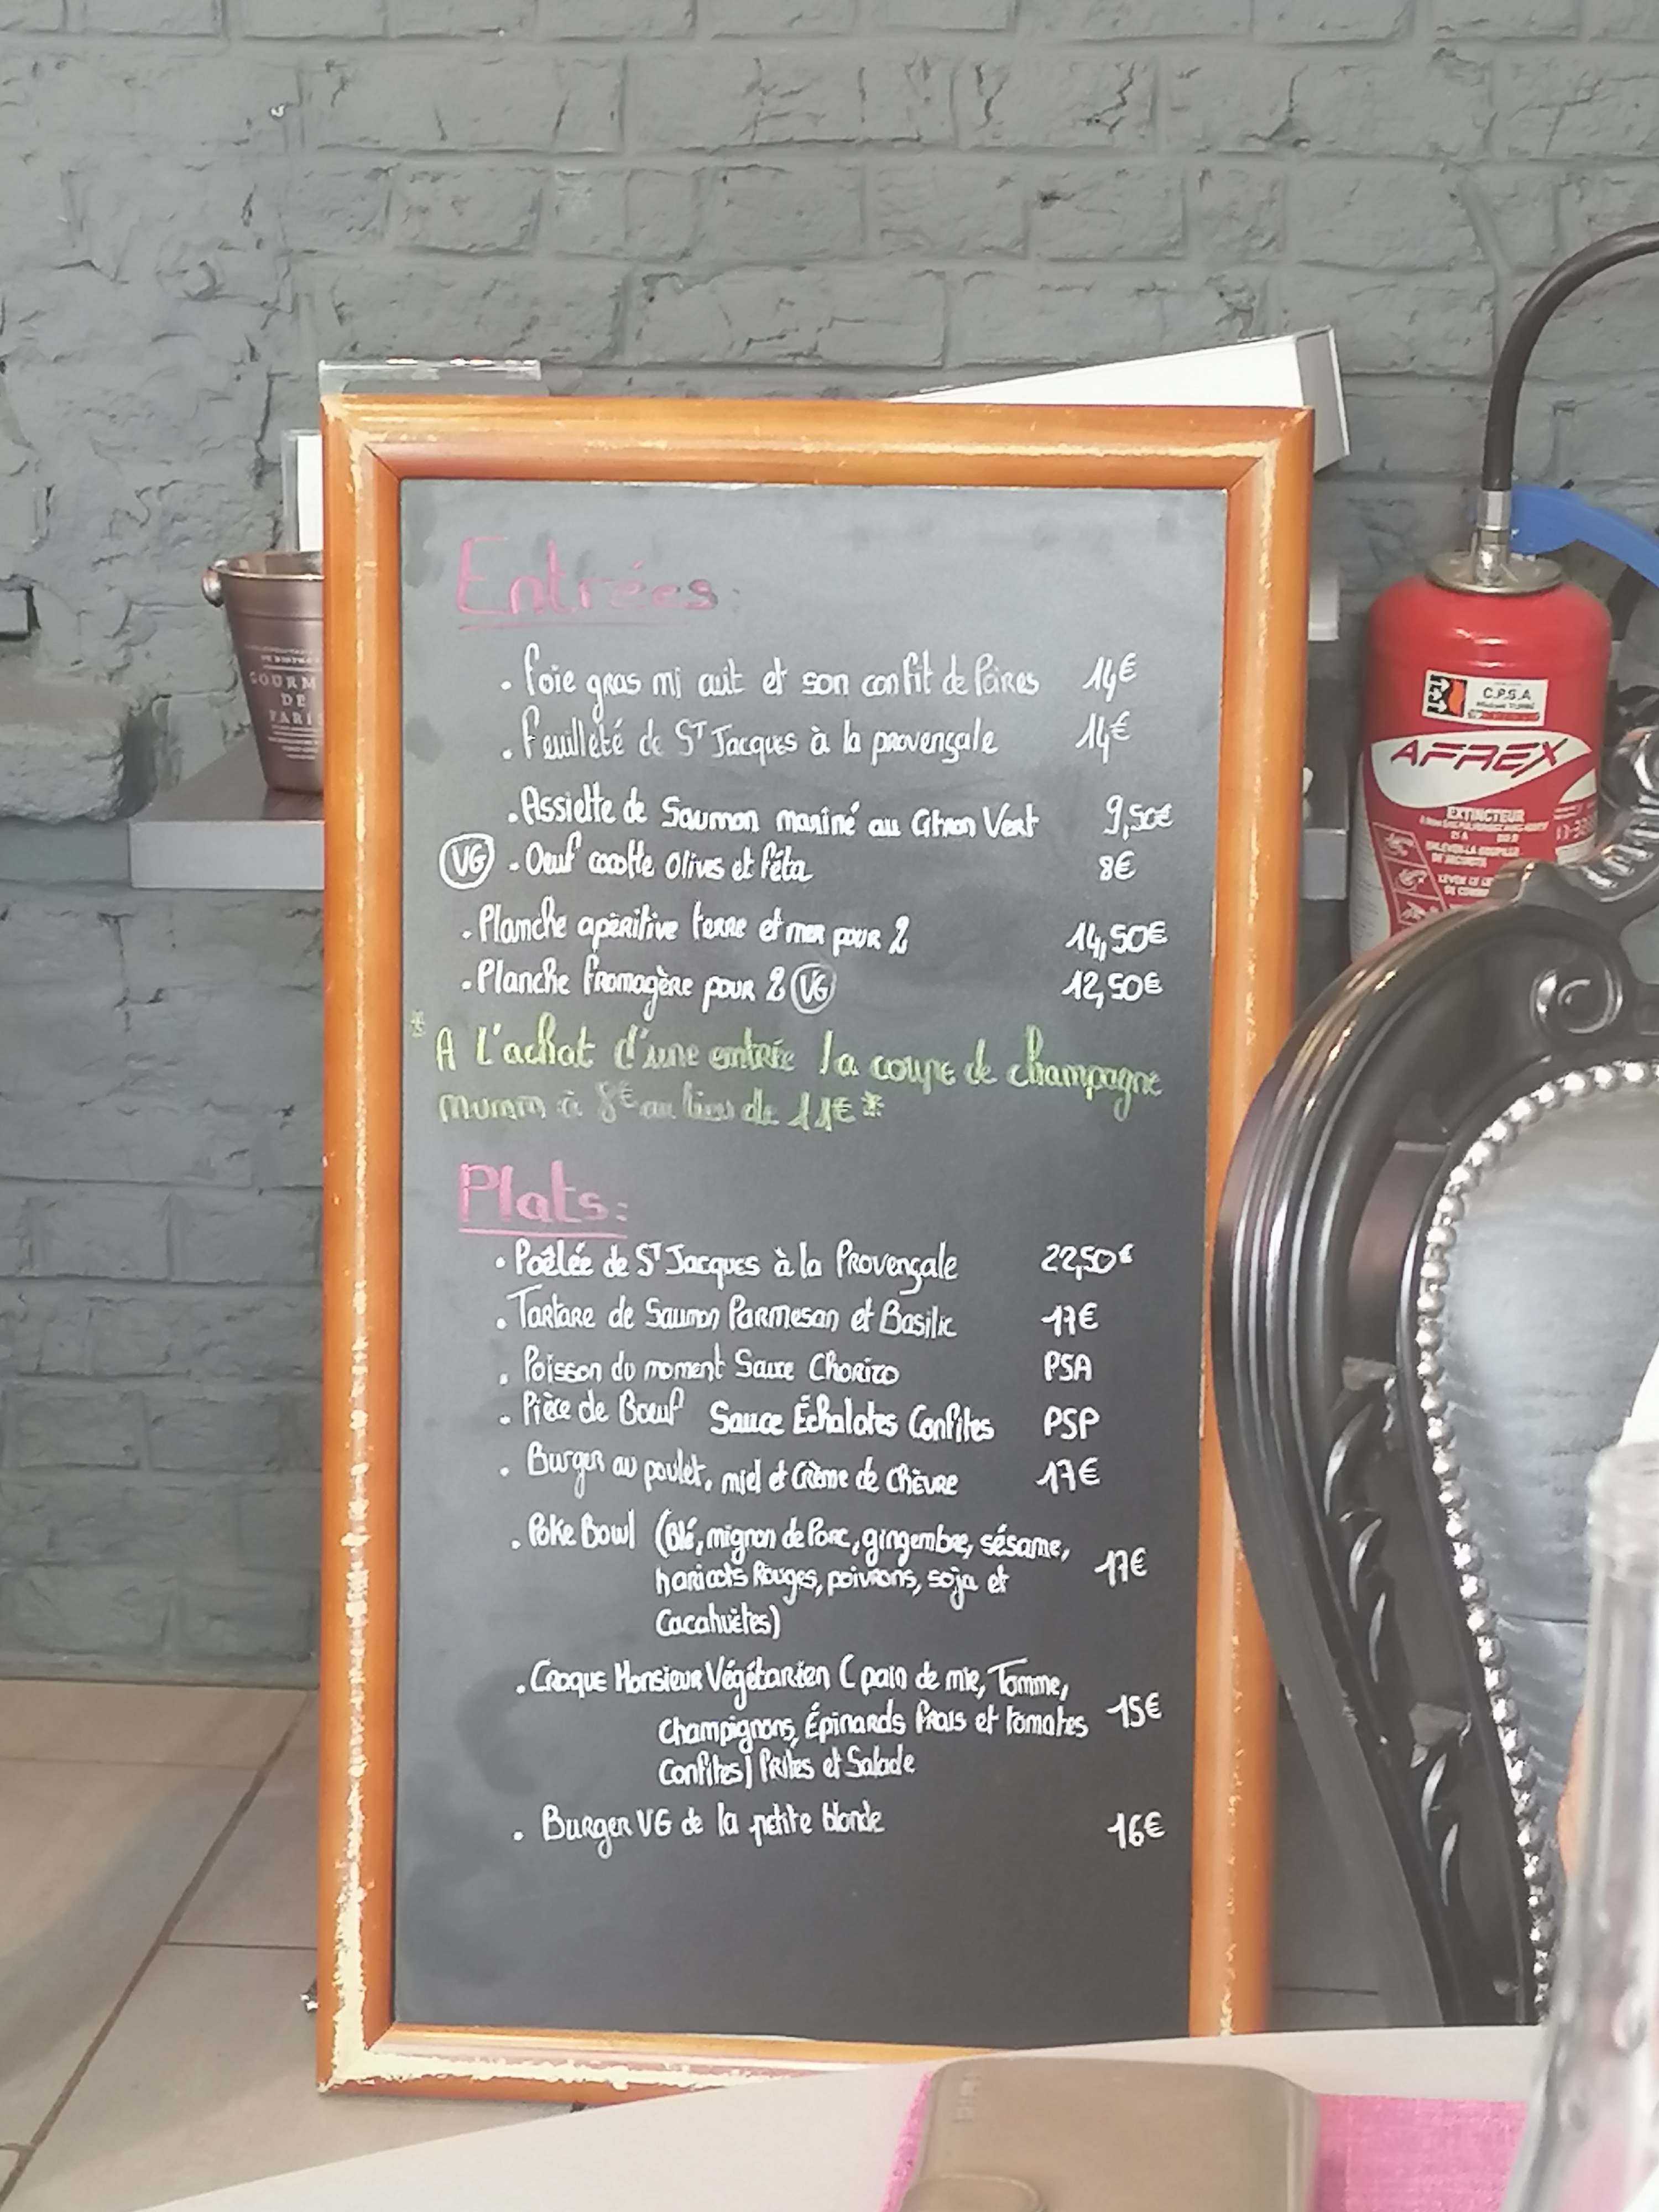 Entrées:
. Foie gras mi cuit et son confit de Poires 14€
. Feuilleté de ST Jacques à la provençale 14€
. Assiette de Saumon mariné au Citron Vert 9,50€
VG . Oeuf cocotte Olives et féta 8€
. Planche apéritive terre et mer pour 2 14,50€
. Planche fromagère pour 2 VG 12,50€
* A l'achat d'une entrée la coupe de champagne
mumm à 8€ au lieu de 11€ *
Plats:
. Poêlée de ST Jacques à la Provençale 22,50€
. Tartare de Saumon Parmesan et Basilic 17€
. Poisson du moment Sauce Chorizo PSA
. Pièce de Boeuf Sauce Échalotes Confites PSP
. Burger au poulet, miel et Crème de Chèvre 17€
. Poke Bowl (Blé, mignon de Porc, gingembre, sésame,
haricots Rouges, poivrons, soja et 17€
Cacahuètes)
. Croque Monsieur Végétarien ( pain de mie, Tomme,
Champignons, Épinards frais et tomates 15€
Confites) frites et Salade
. Burger VG de la petite blonde 16€
GOURM
DE
PARIS
C.P.S.A
AFREX
EXTINCTEUR